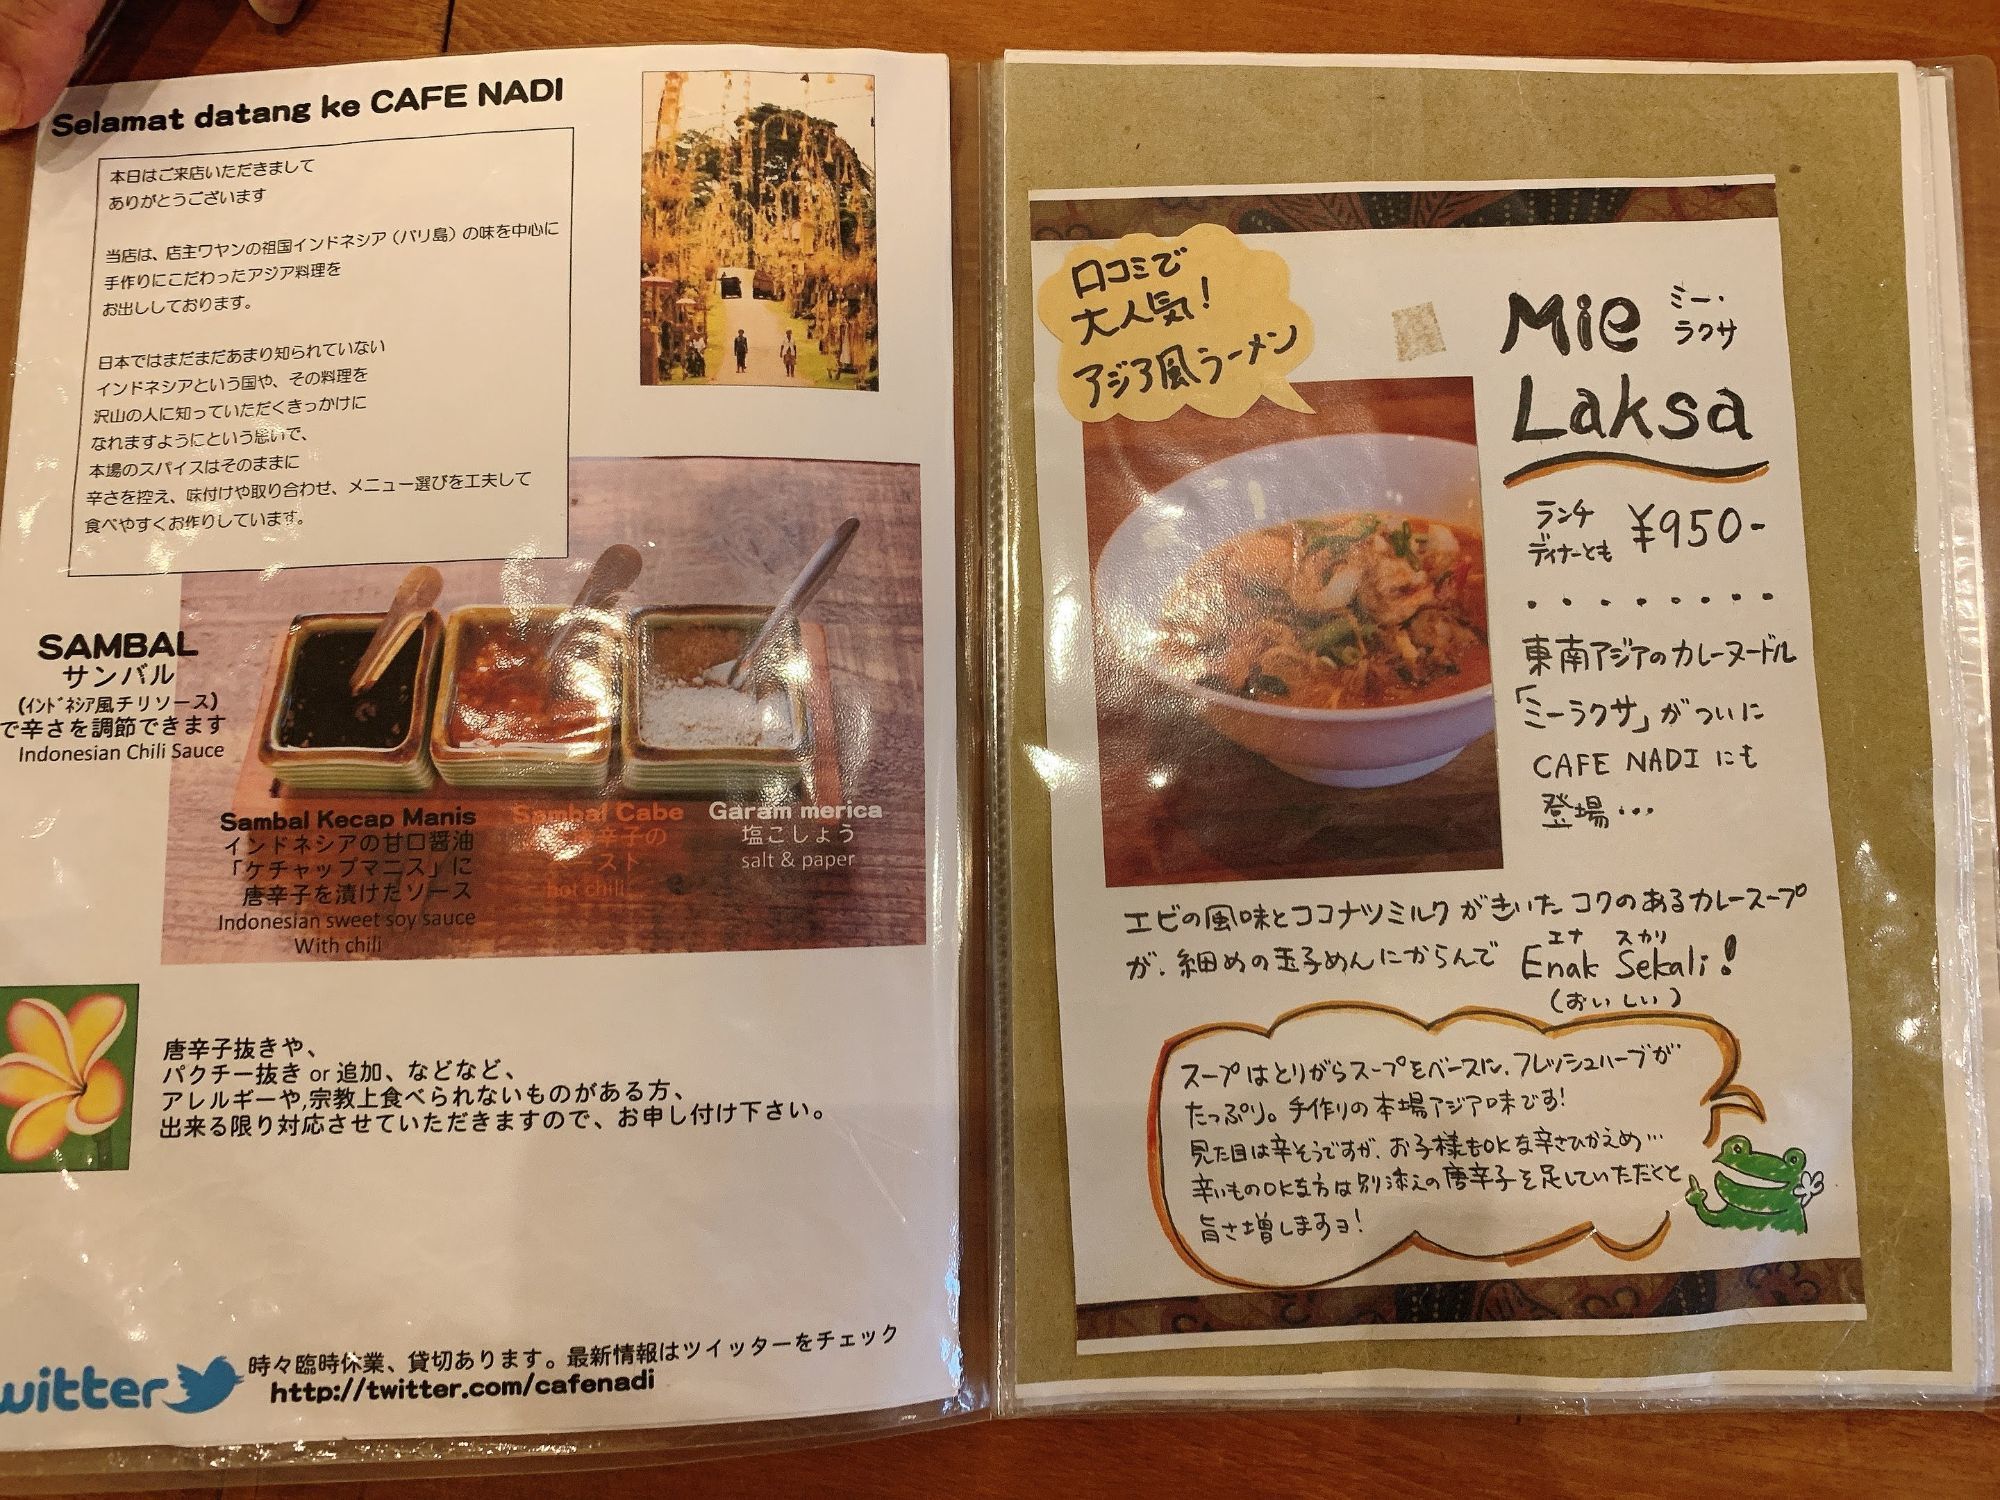 Selamat datang ke CAFE NADI
本日はご来店いただきまして
ありがとうございます
当店は、店主ワヤンの祖国インドネシア（バリ島）の味を中心に
手作りにこだわったアジア料理を
お出ししております。
日本ではまだまだあまり知られていない
インドネシアという国や、その料理を
沢山の人に知っていただくきっかけに
なれますようにという思いで、
本場のスパイスはそのままに
辛さを控え、味付けや取り合わせ、メニュー選びを工夫して
食べやすくお作りしています。
SAMBAL
サンバル
（ｲﾝﾄﾞﾈｼｱ風チリソース）
で辛さを調節できます
Indonesian Chili Sauce
Sambal Kecap Manis
インドネシアの甘口醤油
「ケチャップマニス」に
唐辛子を漬けたソース
Indonesian sweet soy sauce
With chili
Sambal Cabe
辛子の
スト
hot chili
Garam merica
塩こしょう
salt & paper
唐辛子抜きや、
パクチー抜き or 追加、などなど、
アレルギーや,宗教上食べられないものがある方、
出来る限り対応させていただきますので、お申し付け下さい。
witter
時々臨時休業、貸切あります。最新情報はツイッターをチェック
http://twitter.com/cafenadi
口コミで
大人気！
アジア風ラーメン
Mie ミー・
ラクサ
Laksa
ランチ
ディナーとも ¥950-
東南アジアのカレーヌードル
「ミーラクサ」がついに
CAFE NADIにも
登場…
エビの風味とココナツミルクがきいたコクのあるカレースープ
が、細めの玉子めんにからんで
エナ スカリ
Enak Sekali！
（おいしい）
スープはとりがらスープをベースに、フレッシュハーブが
たっぷり。手作りの本場アジア味です！
見た目は辛そうですが、お子様もOKな辛さひかえめ…
辛いものOKな方は別添えの唐辛子を足していただくと
旨さ増しますヨ！